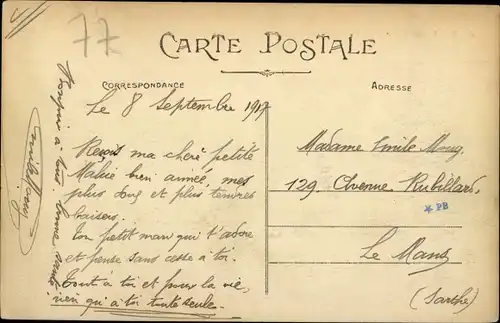 77
CARTE POSTALE
CORRESPONDANCE
ADRESSE
Le 8 Septembre 1917
Reçois ma chère petite
bien aimée, mes
plus doux et plus tendres
baisers.
Ton petit mari qui t'adore
et pense sans cesse à toi.
Tout à toi et pour la vie,
rien qu'à toi toute seule.
Bonjour à tous bonne
Madame Emile
129. Avenue Rubillard.
* PB
Le Mans
(Sarthe)